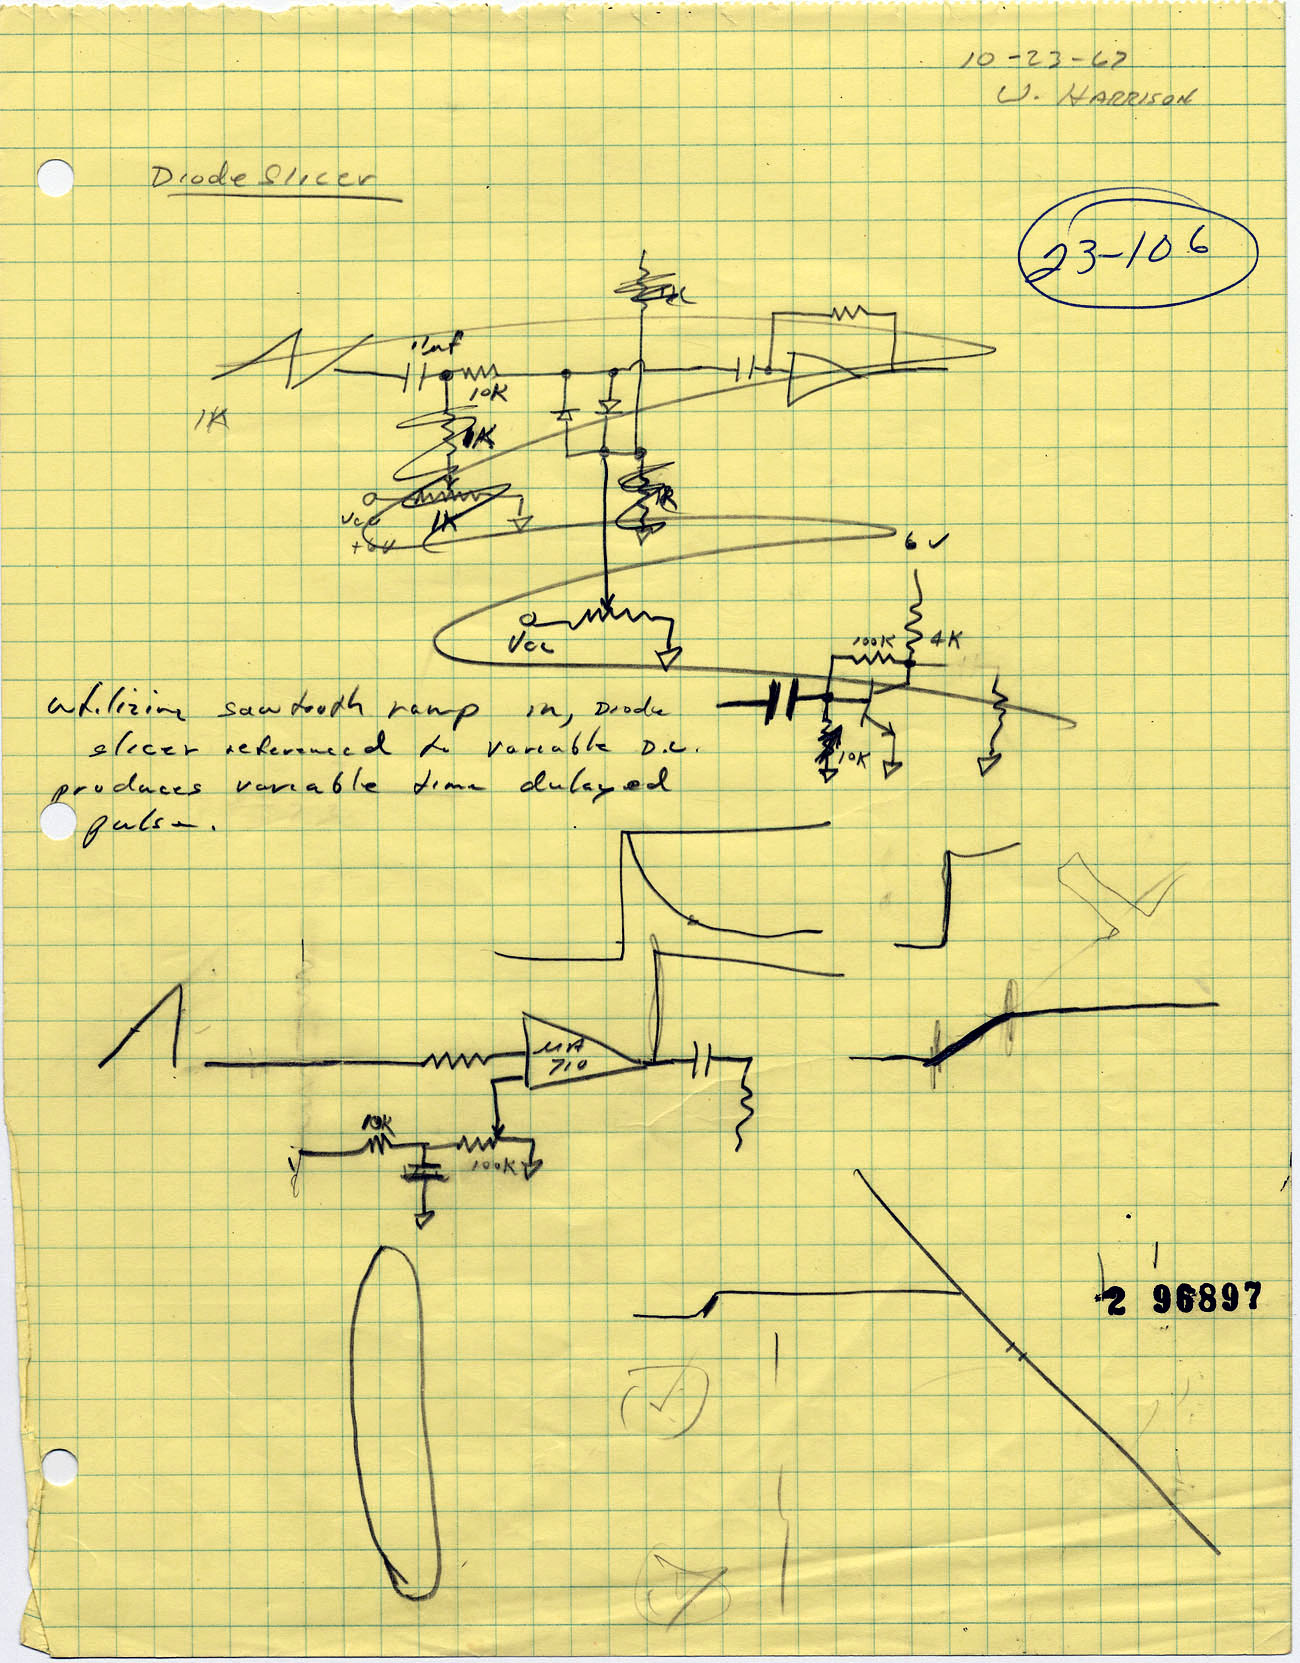 10-23-67
W. HARRISON
Diode Slicer
23-106
10K
1K
1K
Vcc
1K
1K
+6V
6V
Vcc
100K
4K
10K
utilizing sawtooth ramp in, Diode
slicer referenced to variable D.C.
produces variable time delayed
pulse.
μA
710
10K
100K
2 96897